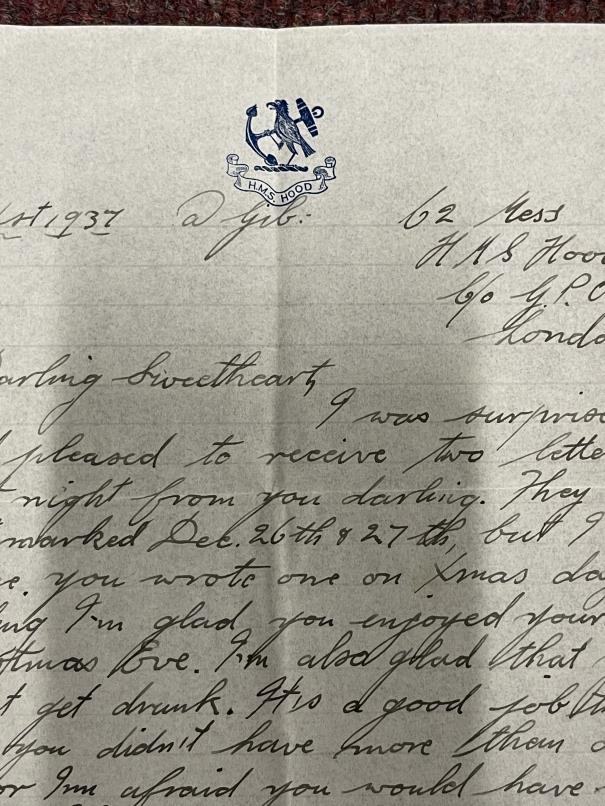 H.M.S. HOOD
1st 1937 @ Gib:- 62 Mess
H M S Hoo
c/o G.P.O
Londo
arling Sweetheart,
I was surpris
pleased to receive two lette
night from you darling. They
marked Dec. 26th & 27th, but I
e. you wrote one on Xmas da
ing I'm glad you enjoyed your
stmas Eve. I'm also glad that
t get drunk. It is a good job th
you didn't have more than
or I'm afraid you would have